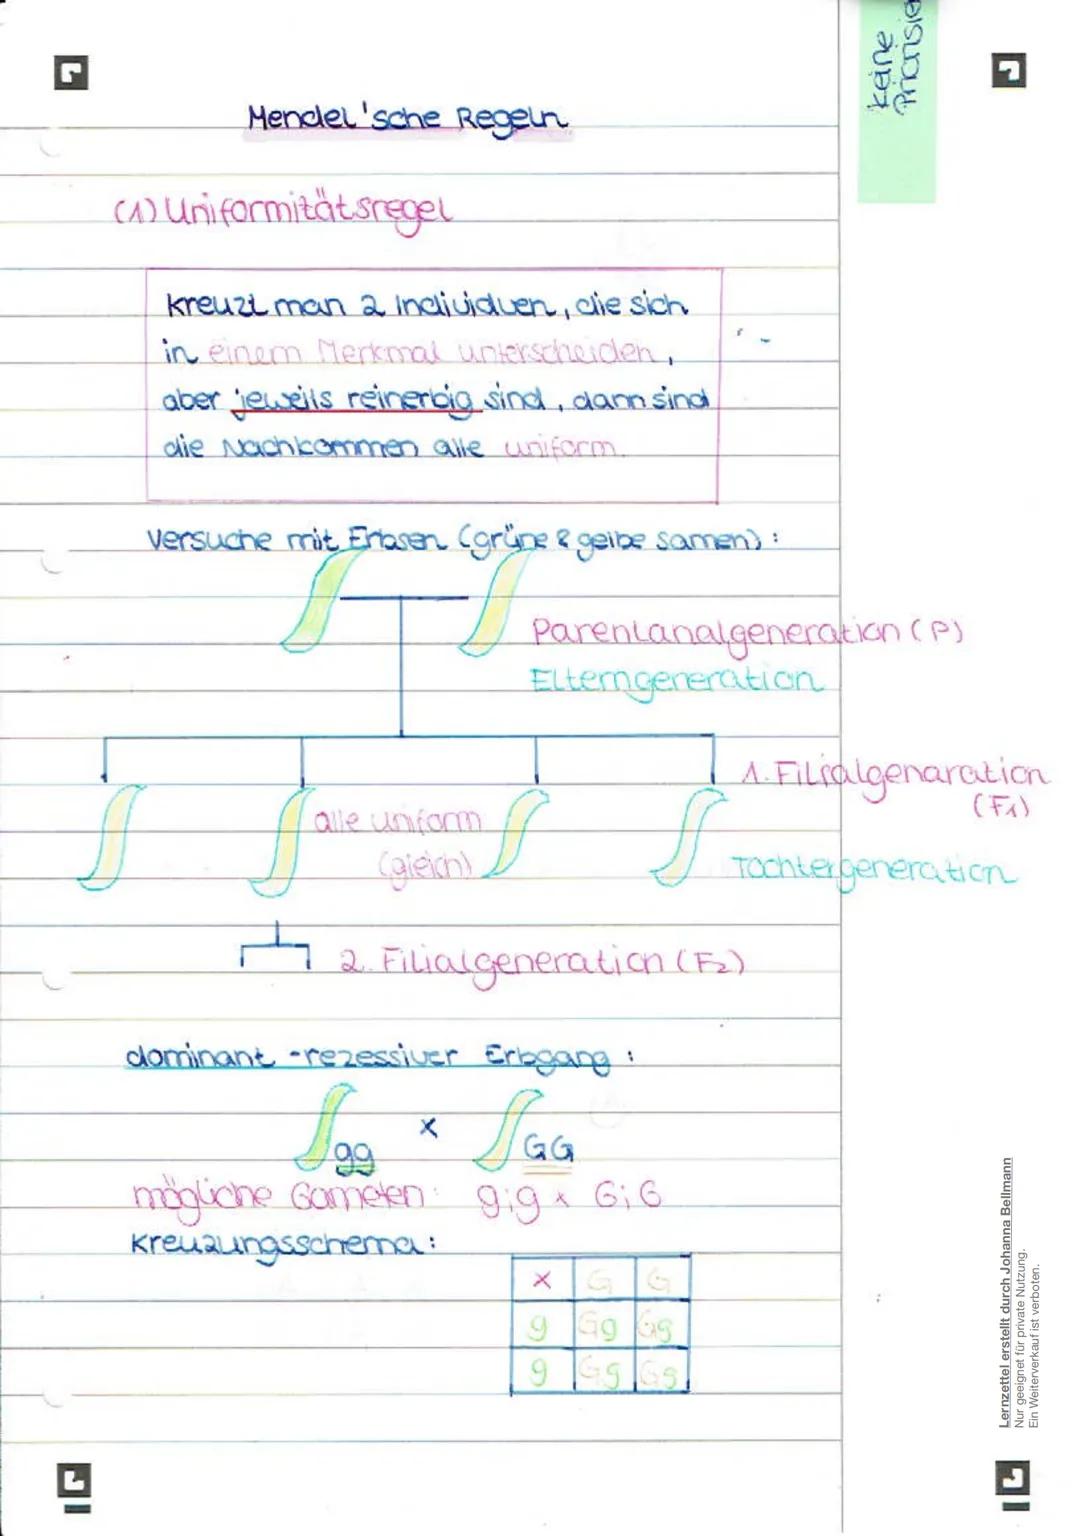 keine
Mendel'sche Regeln
(1) Uniformitätsregel
Kreuzt man 2 Individuen, die sich
in einem Merkmal unterscheiden,
aber jeweils reinerbig sind, dann sind
die Nachkommen alle uniform.
Versuche mit Erbsen (grüne & gelbe Samen):
Parentanalgeneration (P)
Elterngeneration
1. Filialgenaration
(F1)
alle uniform
(gleich)
Tochtergeneration
2. Filialgeneration (F2)
dominant-rezessiver Erbgang:
gg x GG
mögliche Gameten: g;g x G;G
Kreuzungsschema:
x G G
g Gg Gg
g Gg Gg
Lernzettel erstellt durch Johanna Bellmann
Nur geeignet für private Nutzung.
Ein Weiterverkauf ist verboten.